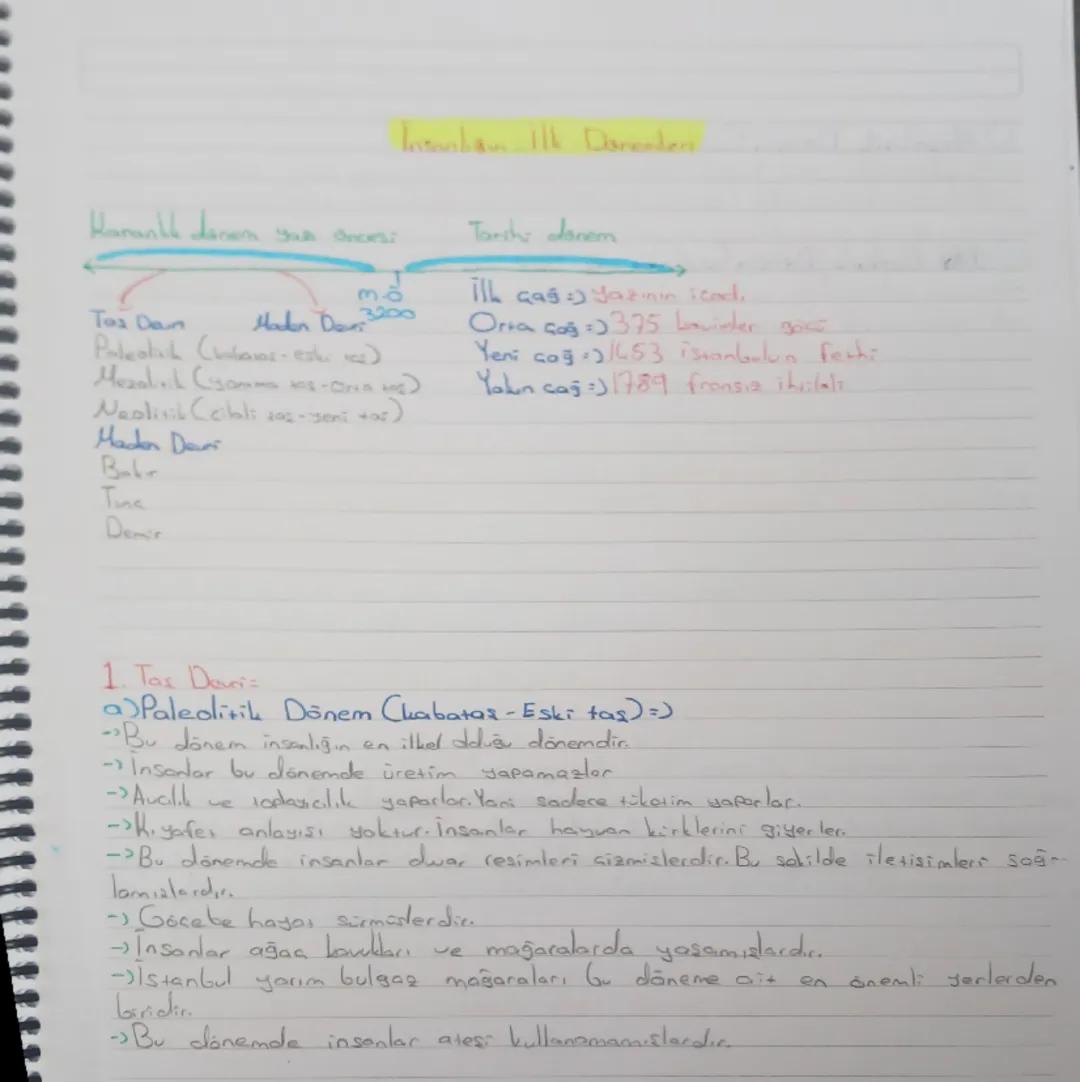 İnsanlığın İlk Dönemleri
Karanlık dönem yazı öncesi
Tarihi dönem
M.Ö
3200
Taş Devri
Maden Devri
Paleolitik (kabataş-eski taş)
Mezolitik (yontma taş-orta taş)
Neolitik (cilalı taş-yeni taş)
Maden Devri
Bakır
Tunç
Demir
İlk çağ => Yazının icadı
Orta çağ => 375 kavimler göçü
Yeni çağ => 1453 istanbulun fethi
Yakın çağ => 1789 fransız ihtilali
1. Taş Devri=
a) Paleolitik Dönem (kabataş - Eski taş) =>
-> Bu dönem insanlığın en ilkel olduğu dönemdir.
-> İnsanlar bu dönemde üretim yapamazlar
-> Avcılık ve toplayıcılık yaparlar. Yani sadece tüketim yaparlar.
-> Kıyafet anlayışı yoktur. İnsanlar hayvan kürklerini giyerler.
-> Bu dönemde insanlar duvar resimleri çizmişlerdir. Bu şekilde iletişimleri sağ-
lamışlardır.
-> Göçebe hayat sürmüşlerdir.
-> İnsanlar ağaç kovukları ve mağaralarda yaşamışlardır.
-> İstanbul yarım bulgaz mağaraları bu döneme ait en önemli yerlerden
biridir.
-> Bu dönemde insanlar ateşi kullanamamışlardır.